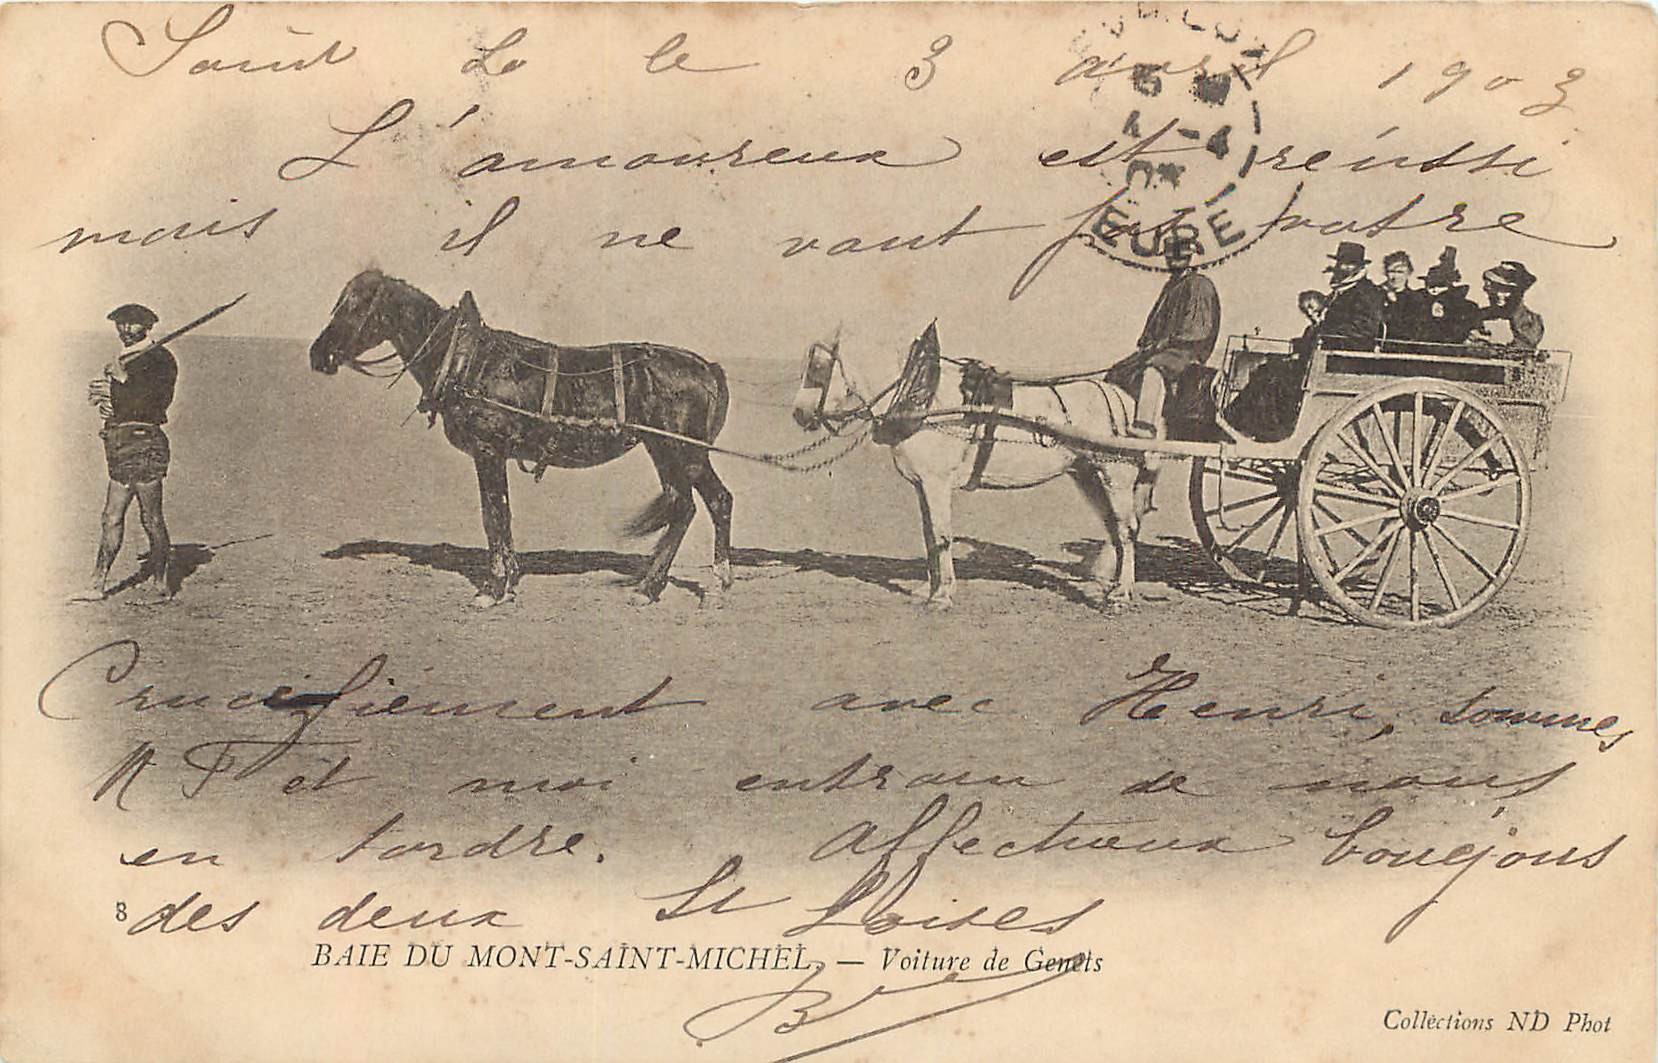 Saint Lo le 3 avril 1903
L'amoureux est réussi
mais il ne vaut pas votre
EURE
Crucifiement avec Henri, sommes
et moi entrain de nous
en tordre. Affectueux bougjous
des deux St Loises
8
BAIE DU MONT-SAINT-MICHEL. — Voiture de Genêts
Collections ND Phot